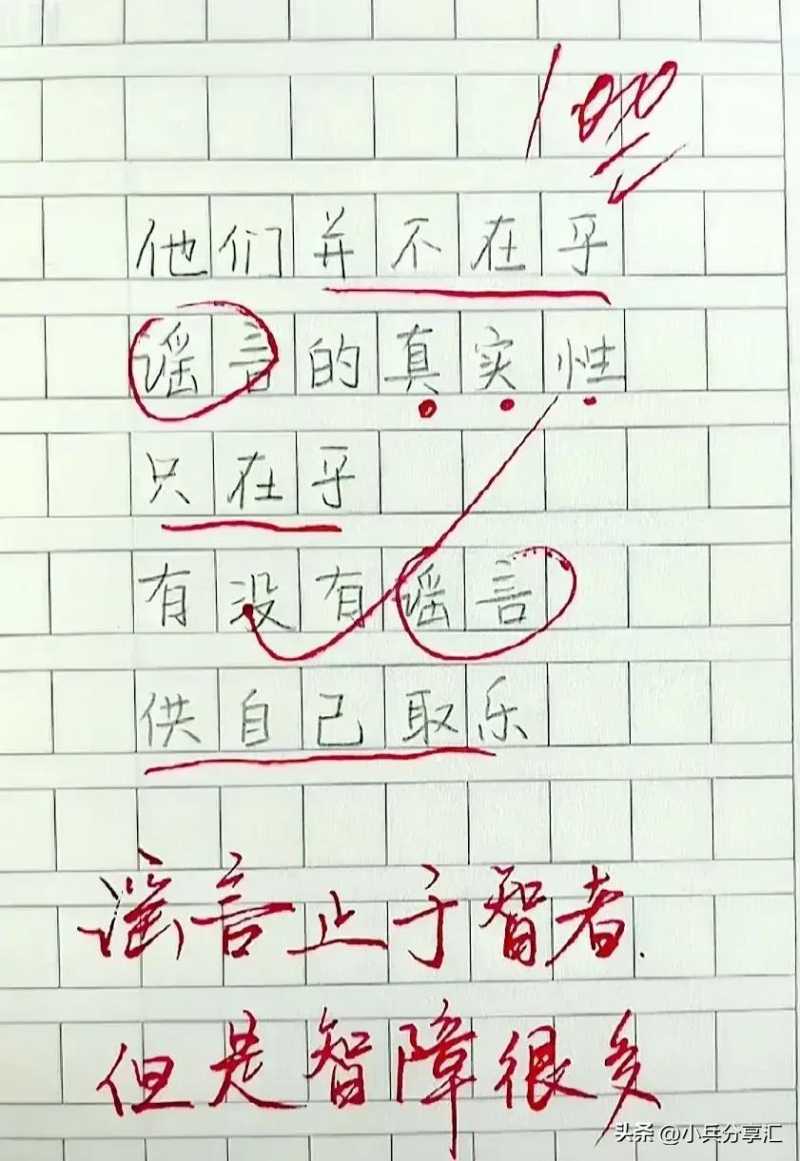 100
他们并不在乎
谣言的真实性
只在乎
有没有谣言
供自己取乐
谣言止于智者.
但是智障很多
头条 @小兵分享汇